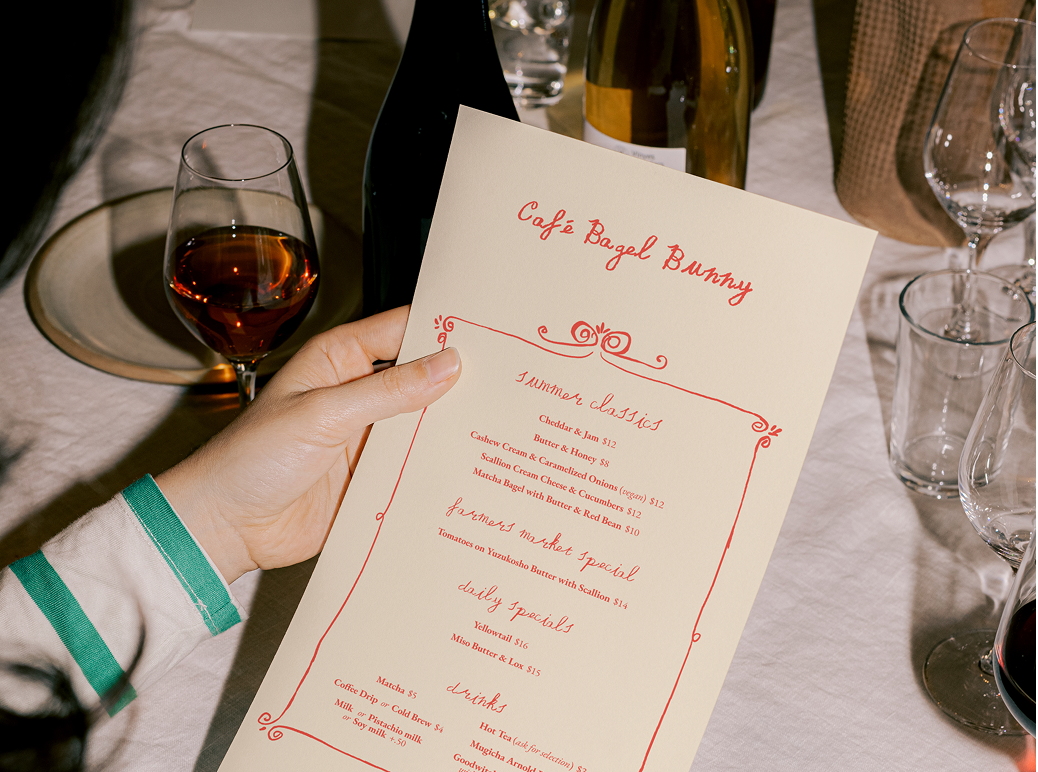 Café Bagel Bunny
summer classics
Cheddar & Jam $12
Butter & Honey $8
Cashew Cream & Caramelized Onions (vegan) $12
Scallion Cream Cheese & Cucumbers $12
Matcha Bagel with Butter & Red Bean $10
farmers market special
Tomatoes on Yuzukosho Butter with Scallion $14
daily specials
Yellowtail $16
Miso Butter & Lox $15
drinks
Matcha $5
Coffee Drip or Cold Brew $4
Milk or Pistachio milk
or Soy milk +.50
Hot Tea (ask for selection)
Mugicha Arnold